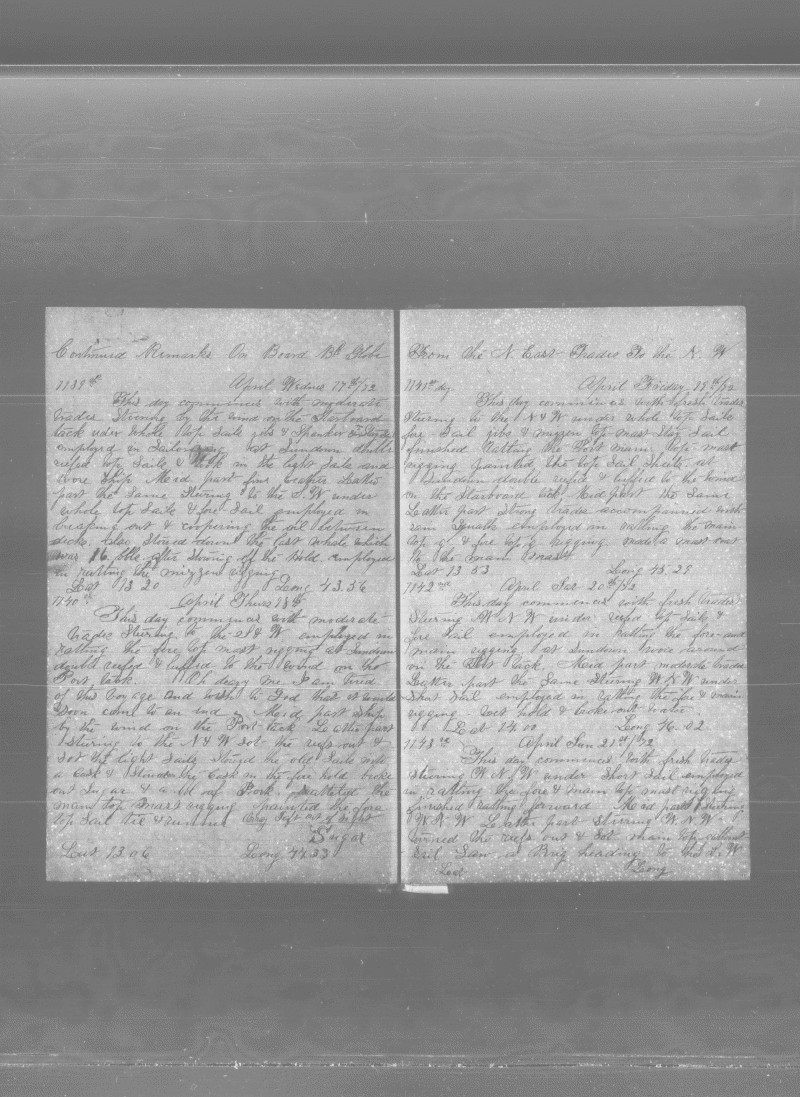 Continued Remarks On Board Bk Globe
1139th April Wednes 17th/72
This day commences with moderate
trades Steering by the wind on the Starboard
tack under whole top Sails jibs & Spanker
employed in Sailorizing at Sundown double
reefed top Sails & took in the light Sails and
wore Ship Mid part fine weather Latter
part the Same Steering to the S. W under
whole top Sails & fore Sail employed in
breaping out & coopering the oil between
decks. Also Stowed down the last whale which
was 16 bbls after Stowing off the Hold employed
in ratting the mizzen rigging
Lat 13 20 Long 43.56
1140th April Thurs 18th
This day commences with moderate
trades Steering to the N & W employed in
ratting the fore top mast rigging at Sundown
double reefed & luffed to the wind on the
Port tack. Oh deary me I am tired
of this voyage and wish to God that it would
Soon come to an end Mid part Ship
by the wind on the Port tack Latter part
Steering to the N & W Sot the reefs out &
Sot the light Sails Stowed the old Sails
a Cask & Stowed the Cask in the fore hold broke
out Sugar & a bbl of Pork. rattled the
main top mast rigging painted the fore
top Sail tie &
Sugar
Lat 13.06 Long 44.33
From the N. East Trades To the N. W
1141st day April Friday 19th/72
This day commences with fresh trades
Steering to the N & W under whole top Sails
fore Sail jibs & mizzen top mast Stay Sail
finished ratting the Port main top mast
rigging painted the top Sail Sheets at
Sundown double reefed & luffed to the wind
on the Starboard tack Mid part the Same
Latter part Strong trades accompanied with
rain Squalls employed in ratting the main
top g & fore top g rigging. made a mast coat
to the main mast
Lat 13 53 Long 45.29
1142nd April Sat 20th/72
This day commences with fresh trades
Steering W N W under reefed top Sails &
fore Sail employed in ratting the fore and
main rigging at Sundown wore around
on the Tack. Mid part moderate trades
Latter part the Same Steering W N W under
Short Sail employed in ratting the fore & main
rigging wet hold & broke out water
Lat 14.00 Long 46.02
1143rd April Sun 21st/72
This day commences with fresh trades
Steering W. N. W under Short Sail employed
in ratting the fore & main top mast rigging
finished ratting forward Mid part Steering
W. N. W Latter part Steering W. N. W
turned the reefs out & Sot main top gallant
Sail Saw a Brig heading to the S. W
Lat Long